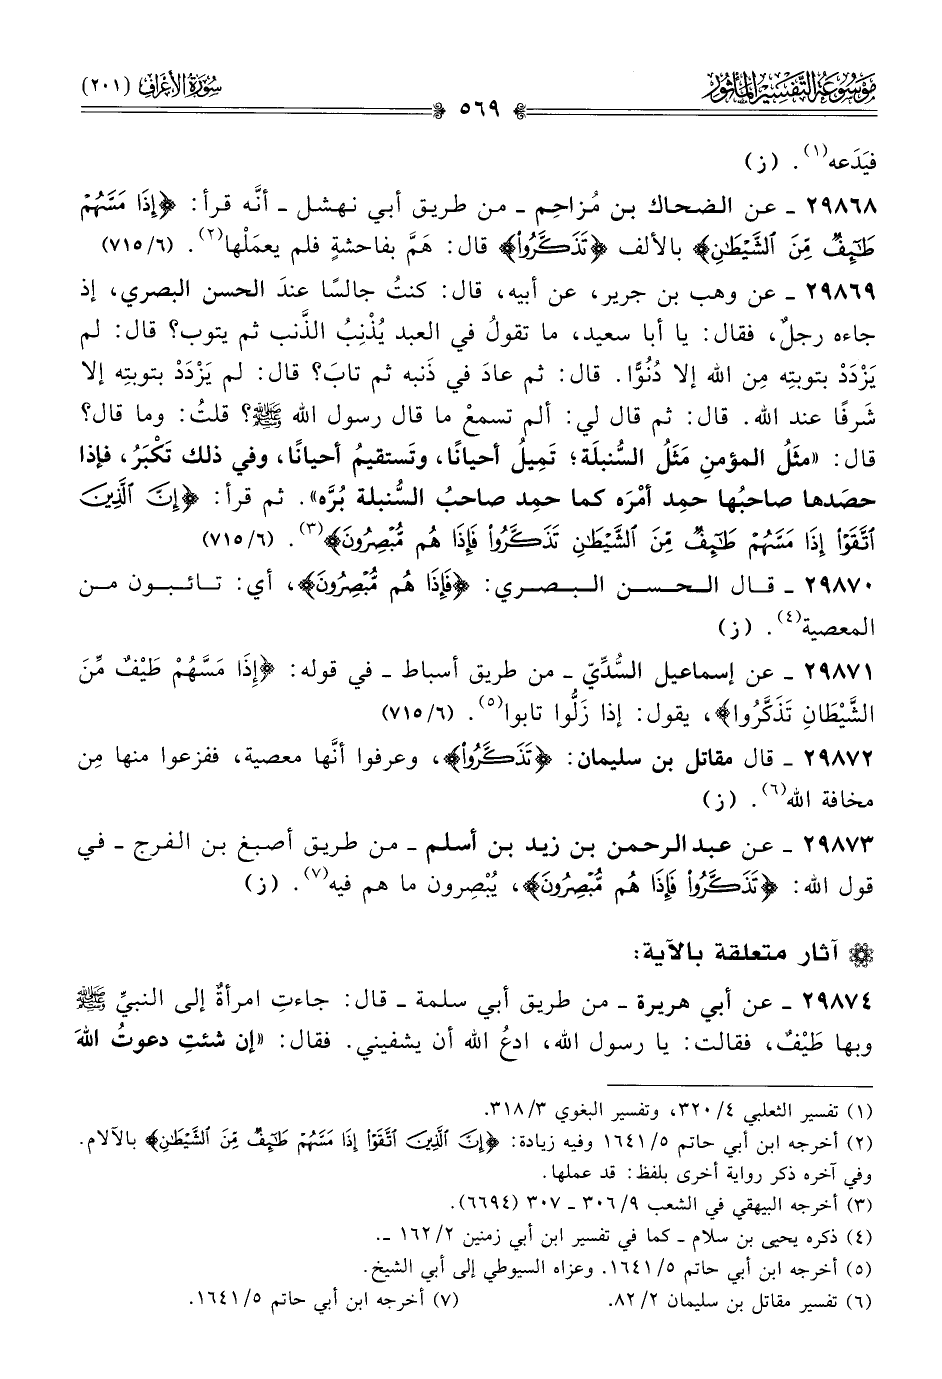 موسوعة التفسير المأثور
سورة الأعراف (٢٠١)
٥٦٩
فيَدَعه(١). (ز)
٢٩٨٦٨ ـ عن الضحاك بن مُزاحِم ـ من طريق أبي نهشل ـ أنَّه قرأ: ﴿إِذَا مَسَّهُمۡ
طَٰٓئِفٞ مِّنَ ٱلشَّيۡطَٰنِ﴾ بالألف ﴿تَذَكَّرُواْ﴾ قال: هَمَّ بفاحشةٍ فلم يعمَلْها(٢). (٦/ ٧١٥)
٢٩٨٦٩ ـ عن وهب بن جرير، عن أبيه، قال: كنتُ جالسًا عندَ الحسن البصري، إذ
جاءه رجلٌ، فقال: يا أبا سعيد، ما تقولُ في العبد يُذْنِبُ الذَّنب ثم يتوب؟ قال: لم
يَزْدَدْ بتوبتِه مِن الله إلا دُنُوًّا. قال: ثم عادَ في ذَنبه ثم تابَ؟ قال: لم يَزْدَدْ بتوبتِه إلا
شَرفًا عند الله. قال: ثم قال لي: ألم تسمعْ ما قال رسول الله ﷺ؟ قلتُ: وما قال؟
قال: «مثَلُ المؤمنِ مَثَلُ السُّنبلَة؛ تَمِيلُ أحيانًا، وتَستقيمُ أحيانًا، وفي ذلك تَكْبَرُ، فإذا
حصَدها صاحبُها حمِد أمْرَه كما حمِد صاحبُ السُّنبلة بُرَّه». ثم قرأ: ﴿إِنَّ ٱلَّذِينَ
ٱتَّقَوۡاْ إِذَا مَسَّهُمۡ طَٰٓئِفٞ مِّنَ ٱلشَّيۡطَٰنِ تَذَكَّرُواْ فَإِذَا هُم مُّبۡصِرُونَ﴾(٣). (٦/ ٧١٥)
٢٩٨٧٠ ـ قال الحسن البصري: ﴿فَإِذَا هُم مُّبۡصِرُونَ﴾، أي: تائبون من
المعصية(٤). (ز)
٢٩٨٧١ ـ عن إسماعيل السُّدِّيّ ـ من طريق أسباط ـ في قوله: ﴿إِذَا مَسَّهُمْ طَيْفٌ مِّنَ
الشَّيْطَانِ تَذَكَّرُوا﴾، يقول: إذا زَلُّوا تابوا(٥). (٦/ ٧١٥)
٢٩٨٧٢ ـ قال مقاتل بن سليمان: ﴿تَذَكَّرُواْ﴾، وعرفوا أنَّها معصية، ففزعوا منها مِن
مخافة الله(٦). (ز)
٢٩٨٧٣ ـ عن عبد الرحمن بن زيد بن أسلم ـ من طريق أصبغ بن الفرج ـ في
قول الله: ﴿تَذَكَّرُواْ فَإِذَا هُم مُّبۡصِرُونَ﴾، يُبْصِرون ما هم فيه(٧). (ز)
آثار متعلقة بالآية:
٢٩٨٧٤ ـ عن أبي هريرة ـ من طريق أبي سلمة ـ قال: جاءتِ امرأةٌ إلى النبيِّ ﷺ
وبها طَيْفٌ، فقالت: يا رسول الله، ادعُ الله أن يشفيني. فقال: «إن شئتِ دعوتُ اللهَ
(١) تفسير الثعلبي ٤/ ٣٢٠، وتفسير البغوي ٣/ ٣١٨.
(٢) أخرجه ابن أبي حاتم ٥/ ١٦٤١ وفيه زيادة: ﴿إِنَّ ٱلَّذِينَ ٱتَّقَوۡاْ إِذَا مَسَّهُمۡ طَٰٓئِفٞ مِّنَ ٱلشَّيۡطَٰنِ﴾ بالآلام.
وفي آخره ذكر رواية أخرى بلفظ: قد عملها.
(٣) أخرجه البيهقي في الشعب ٩/ ٣٠٦ ـ ٣٠٧ (٦٦٩٤).
(٤) ذكره يحيى بن سلام ـ كما في تفسير ابن أبي زمنين ٢/ ١٦٢ ـ.
(٥) أخرجه ابن أبي حاتم ٥/ ١٦٤١. وعزاه السيوطي إلى أبي الشيخ.
(٦) تفسير مقاتل بن سليمان ٢/ ٨٢. (٧) أخرجه ابن أبي حاتم ٥/ ١٦٤١.